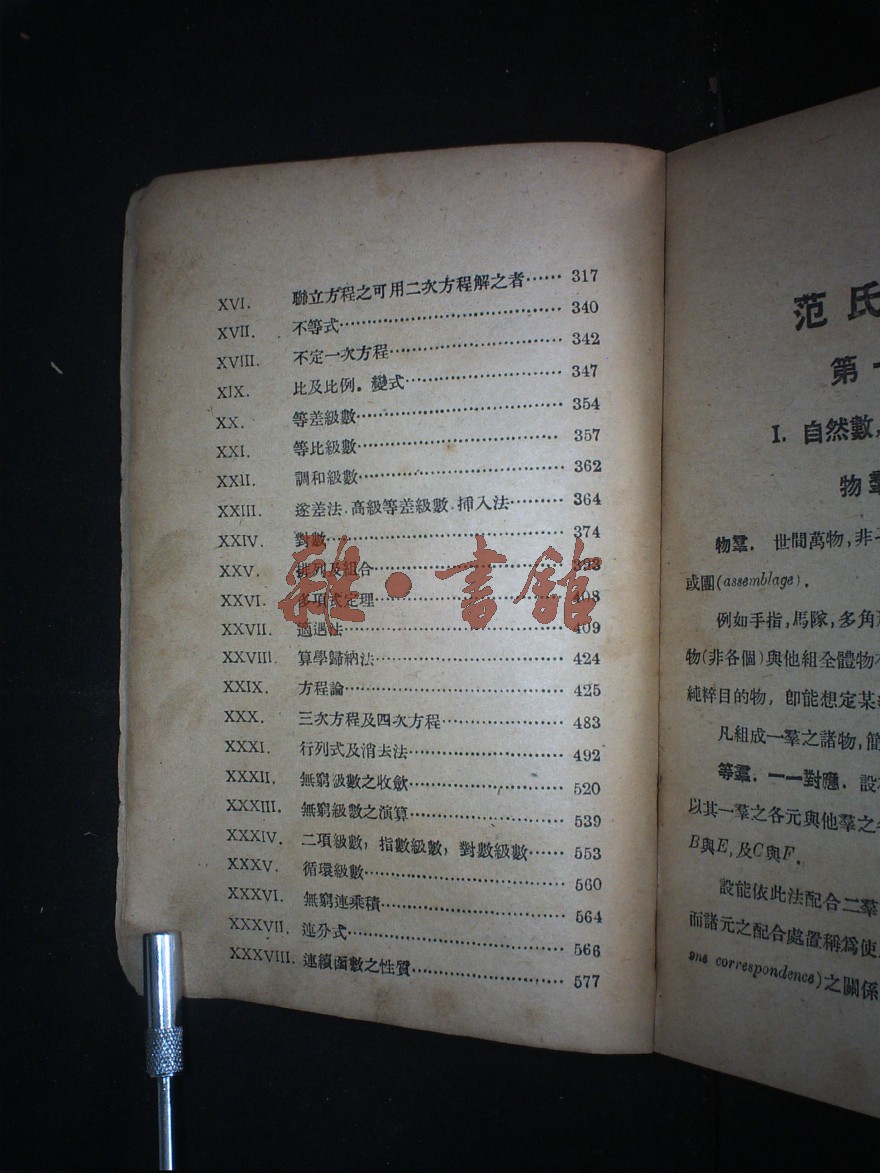 XVI. 聯立方程之可用二次方程解之者…… 317
XVII. 不等式…… 340
XVIII. 不定一次方程…… 342
XIX. 比及比例. 變式…… 347
XX. 等差級數…… 354
XXI. 等比級數…… 357
XXII. 調和級數…… 362
XXIII. 遂差法, 高級等差級數, 挿入法…… 364
XXIV. 對數…… 374
XXV. 排列及組合
XXVI. 多項式定理…… 408
XXVII. 適遇法…… 409
XXVIII. 算學歸納法…… 424
XXIX. 方程論…… 425
XXX. 三次方程及四次方程…… 483
XXXI. 行列式及消去法…… 492
XXXII. 無窮級數之收歛…… 520
XXXIII. 無窮級數之演算…… 539
XXXIV. 二項級數, 指數級數, 對數級數…… 553
XXXV. 循環級數…… 560
XXXVI. 無窮連乘積…… 564
XXXVII. 連分式…… 566
XXXVIII. 連續函數之性質…… 577
雜·書館
范氏
第一
I. 自然數,
物羣
物羣. 世間萬物,非
或團(assemblage).
例如手指,馬隊,多角
物(非各個)與他組全體物
純粹目的物, 卽能想定某
凡組成一羣之諸物,簡
等羣. 一一對應. 設
以其一羣之各元與他羣之
B與E, 及C與F.
設能依此法配合二羣
而諸元之配合處置稱爲使
one correspondence)之關係